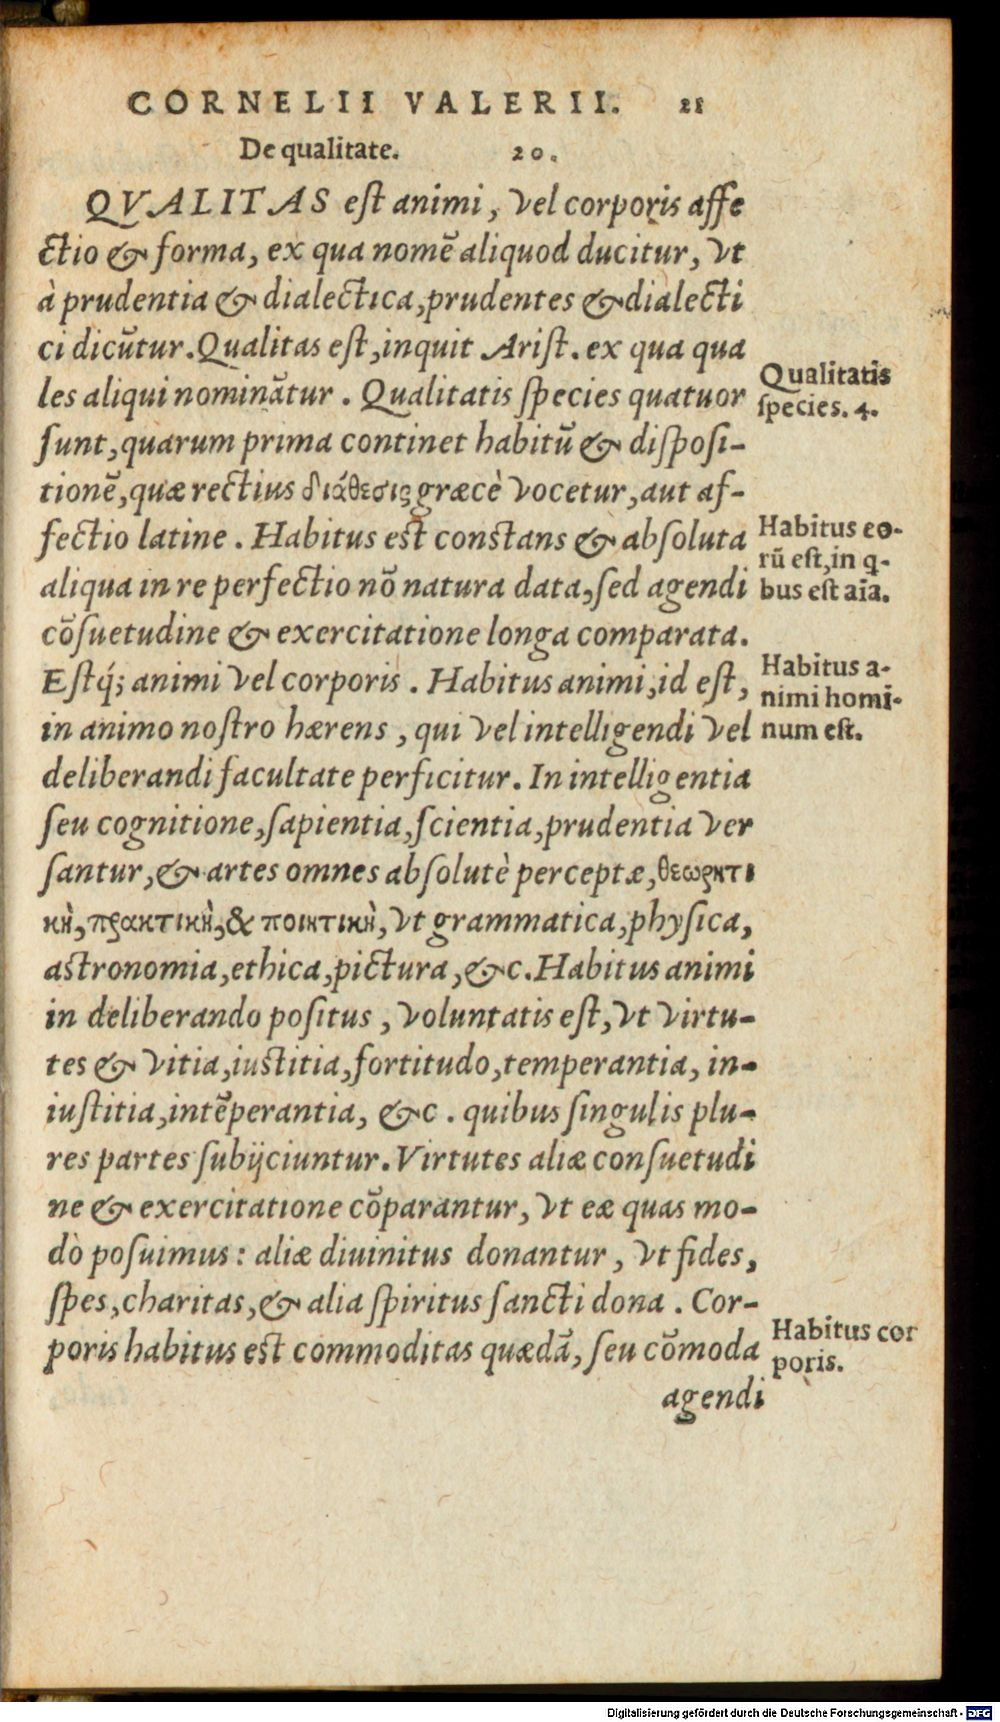 CORNELII VALERII. 21
De qualitate. 20.
QVALITAS est animi, vel corporis affe
ctio & forma, ex qua nomē aliquod ducitur, vt
à prudentia & dialectica, prudentes & dialecti
ci dicūtur. Qualitas est, inquit Arist. ex qua qua
les aliqui nominātur. Qualitatis species quatuor
Qualitatis
species. 4.
sunt, quarum prima continet habitū & disposi-
tionē, quæ rectius διάθεσις græcè vocetur, aut af-
fectio latine. Habitus est constans & absoluta
Habitus eo-
rū est, in q-
bus est aīa.
aliqua in re perfectio nō natura data, sed agendi
cōsuetudine & exercitatione longa comparata.
Estq́; animi vel corporis. Habitus animi, id est,
Habitus a-
nimi homi-
num est.
in animo nostro hærens, qui vel intelligendi vel
deliberandi facultate perficitur. In intelligentia
seu cognitione, sapientia, scientia, prudentia ver
santur, & artes omnes absolutè perceptæ, θεωρητι
κὴ, πρακτικὴ, & ποιητικὴ, vt grammatica, physica,
astronomia, ethica, pictura, &c. Habitus animi
in deliberando positus, voluntatis est, vt virtu-
tes & vitia, iustitia, fortitudo, temperantia, in-
iustitia, intēperantia, &c. quibus singulis plu-
res partes subijciuntur. Virtutes aliæ consuetudi
ne & exercitatione cōparantur, vt eæ quas mo-
dò posuimus: aliæ diuinitus donantur, vt fides,
spes, charitas, & alia spiritus sancti dona. Cor-
poris habitus est commoditas quædā, seu cōmoda
Habitus cor
poris.
agendi
Digitalisierung gefördert durch die Deutsche Forschungsgemeinschaft - DFG